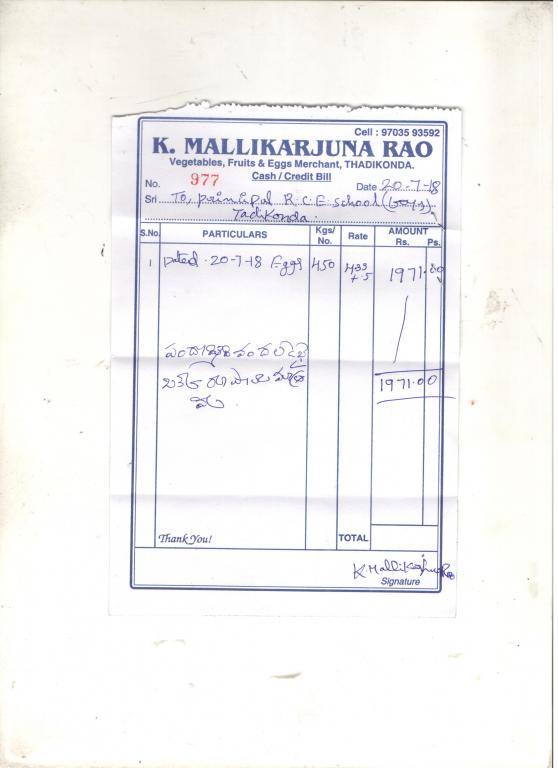 Cell : 97035 93592
K. MALLIKARJUNA RAO
Vegetables, Fruits & Eggs Merchant, THADIKONDA.
Cash / Credit Bill
No. 977 Date 20-7-18
Sri To, principal R.C.E. school (boys)
Tadikonda.
S.No. PARTICULARS Kgs/ No. Rate AMOUNT Rs. Ps.
1 Dated 20-7-18 Eggs 450 433 +5 1971.00
1971.00
Thank You! TOTAL
K. Mallikarjuna Rao
Signature